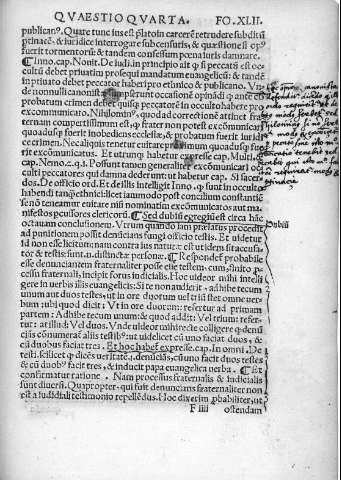 QVAESTIO QVARTA. FO. XLII.
publican⁹. Quare tunc ius est platoin carcerē retrudere subditū
& iuridice interrogare sub censuris, & quæstione si op⁹
fuerit tormentorū & tandem confessum pœna iuris damnare.
¶ Inno. cap. Nouit. De iudi. in principio ait ꝙ si peccatū est oc-
cultū debet priuatim prosequi mandatum euangelicū: & tandē
in priuatim debet poctor haberi pro ethnico & publicano. Vn̄
de nonnulli canonistæ sumpserunt occasionē opinādi ꝙ ante cū
probatum crimen debet quisq̄ peccatorē in occulto habere pro
excommunicato. Nihilomin⁹, quoad correctionē attinet fra-
ternam compertissimum est, ꝙ frater non potest excōmunicari
quousq̄ fuerit inobediens ecclesiæ, & probatum fuerit iuridi-
ce crimen. Nec aliquis tenetur euitare proximum quousq̄ fue-
rit excōmunicatus. Et utrunq̄ habetur expresse cap. Multi. &
cap. Nemo. 2. q. 1. Possunt tamen generaliter excōmunicari oc-
culti peccatores qui damna dederunt: ut habetur cap. Si sacer-
dos. De officio ord. Et de illis intelligit Inno. ꝙ sunt in occulto
habendi tanq̄ ethnici: licet iam modo post concilium constantiē
se nō teneamur euitare nisi nominatim excōmunicatos aut ma-
nifestos pcussores clericorū. ¶ Sed dubiū egregiū est circa hāc
octauam conclusionem. Vtrum quando iam prælatus procedit
ad punitionem possit denūcians fungi officio testis. Et uidetur
id non esse licitum: nam contra ius naturæ est ut idem sit accusa-
tor & testis: sunt n. distinctæ personæ. ¶ Respondet probabile
esse denunciantem fraternaliter posse esse testem, cum, finito p̄
cessu fraternali, incipit forus iudicialis. Hoc uideor mihi intelli
gere in uerbis illis euangelicis: Si te non audierit, adhibe tecum
unum aut duos testes, ut in ore duorum uel triū stet omne uer-
bum: ubi quod dicit: Vt in ore duorum: refertur ad primam
partem: Adhibe tecum unum: & quod addit: Vel trium: refer-
tur: at illud: Vel duos. Vnde uideor mihi recte colligere ꝙ denū
ciās cōnumerat aliis testib⁹: ut uidelicet cū uno faciat duos, &
cū duobus faciat tres. Et hoc habet expresse. cap. In omni. De
testi. scilicet ꝙ dicēs ueritatē. i. denūciās, cū uno facit duos testes
& cū duob⁹ facit tres, & inducit papa euangelica uerba. ¶ Et
confirmatur ratione. Nam processus fraternalis & iudicialis
sunt diuersi. Quapropter, qui fuit denuncians fraternaliter non
est a iudiciali testimonio repellēdus. Hoc dixerim probabiliter, ut
F iiii ostendam
Dubiū